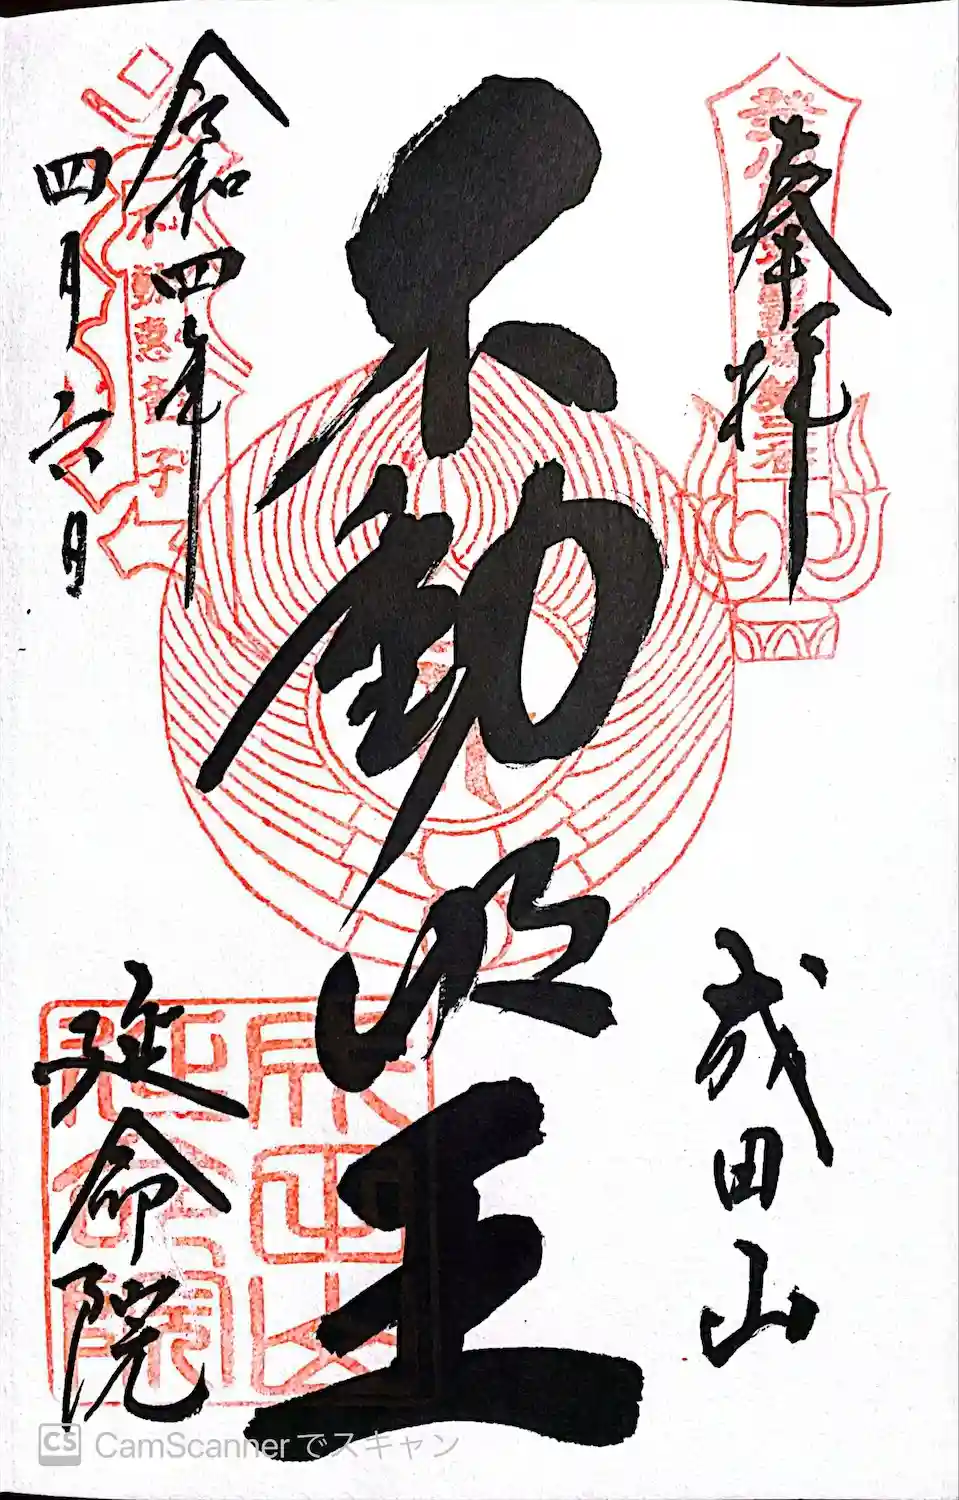 奉拝
成田山
不動明王
令和四年
四月六日
延命院
CamScannerでスキャン